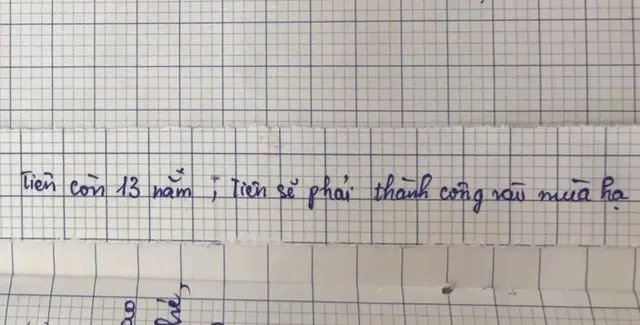 Tiên còn 13 năm ; Tiên sẽ phải thành công vào mùa hạ
ao